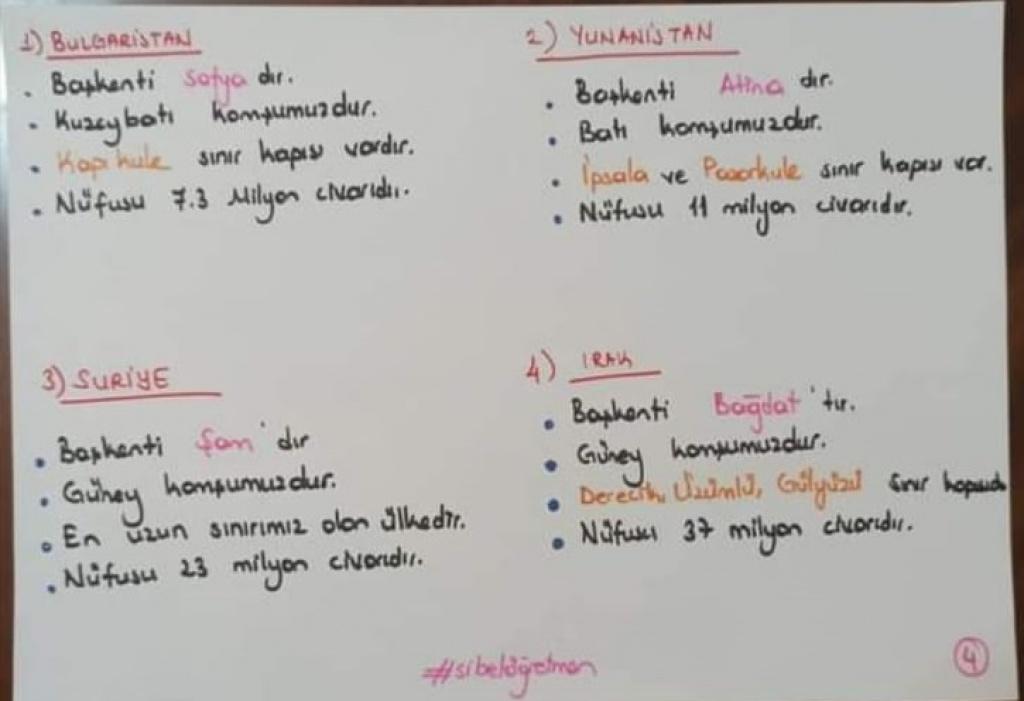 1) BULGARİSTAN
. Başkenti Sofya dır.
. Kuzeybatı komşumuzdur.
. Kapıkule sınır kapısı vardır.
. Nüfusu 7.3 Milyon civarıdır.
2) YUNANİSTAN
. Başkenti Atina dır.
. Batı komşumuzdur.
. İpsala ve Pazarkule sınır kapısı var.
. Nüfusu 11 milyon civarıdır.
3) SURİYE
. Başkenti Şam'dır
. Güney komşumuzdur.
. En uzun sınırımız olan ülkedir.
. Nüfusu 23 milyon civarıdır.
4) IRAK
. Başkenti Bağdat'tır.
. Güney komşumuzdur.
. Derecik, Üzümlü, Gülyazı sınır kapısıdı
. Nüfusu 37 milyon civarıdır.
#sibelöğretmen
4